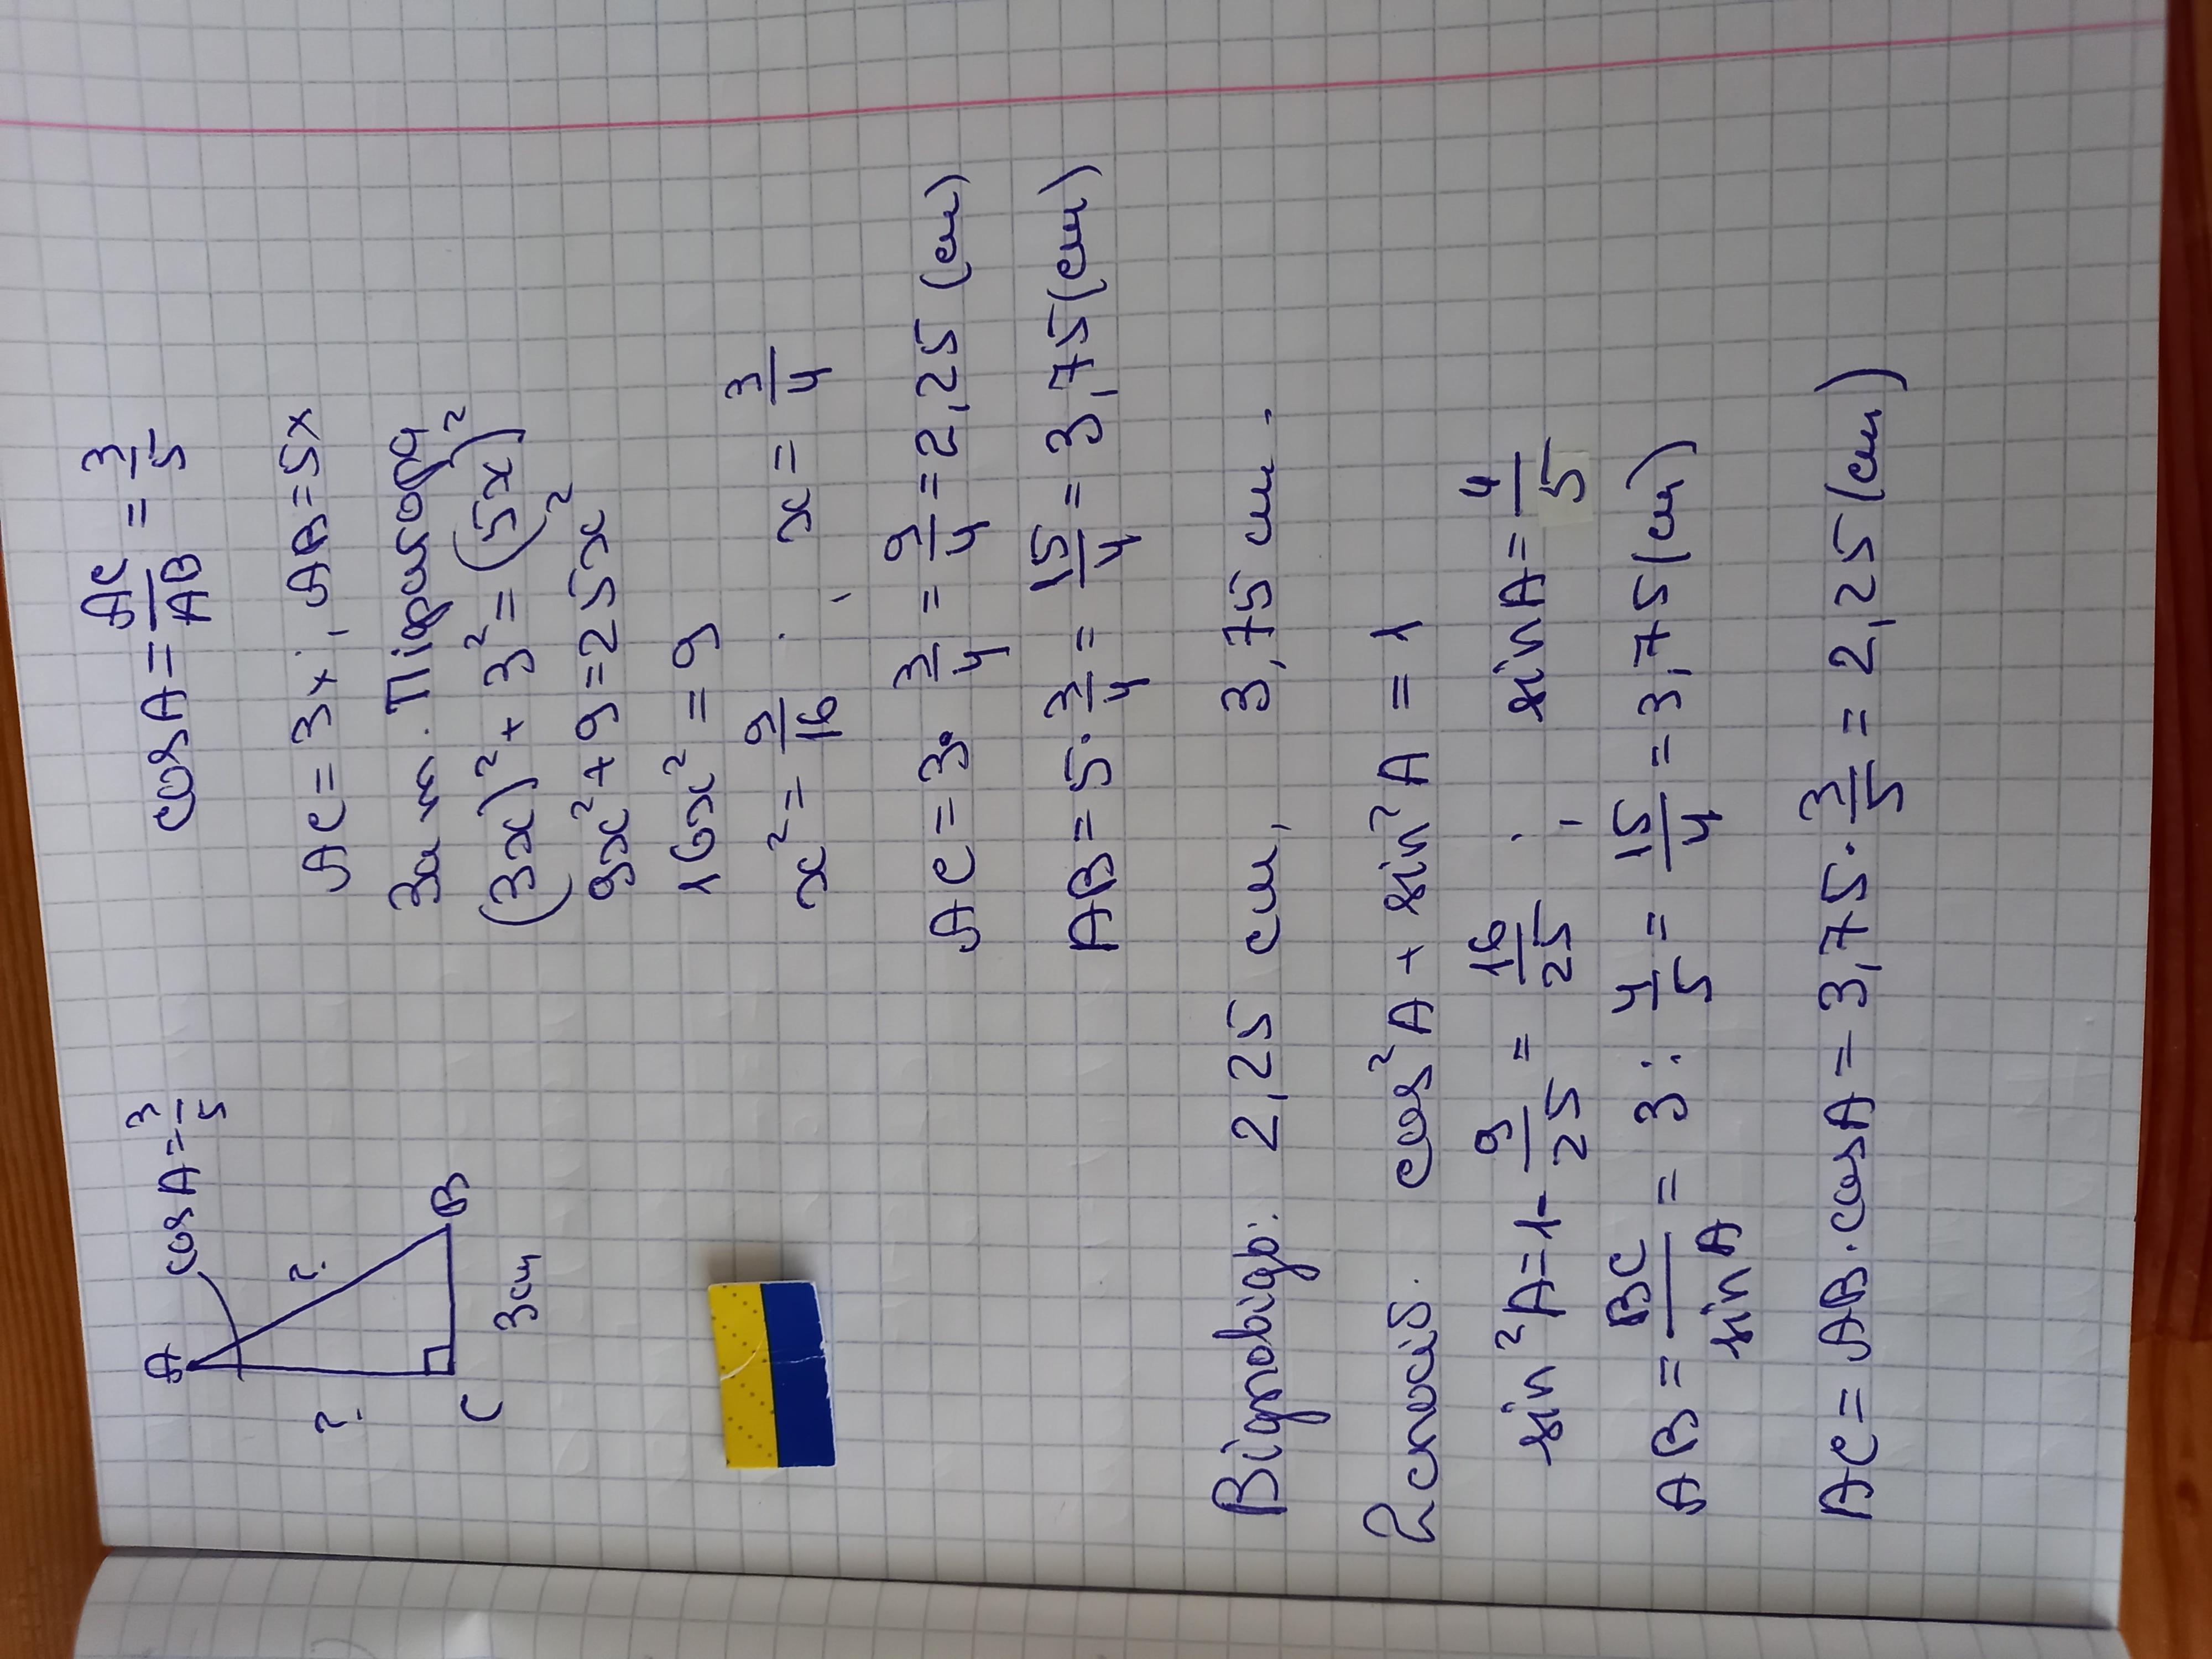 A
cos A = 3/5
?
?
C
B
3см
cos A = AC/AB = 3/5
AC = 3x; AB = 5x
За т. Піфагора
(3x)² + 3² = (5x)²
9x² + 9 = 25x²
16x² = 9
x² = 9/16 ; x = 3/4
AC = 3 · 3/4 = 9/4 = 2,25 (см)
AB = 5 · 3/4 = 15/4 = 3,75 (см)
Відповідь: 2,25 см, 3,75 см.
2 спосіб. cos² A + sin² A = 1
sin² A = 1 - 9/25 = 16/25 ; sin A = 4/5
AB = BC/sin A = 3 : 4/5 = 15/4 = 3,75 (см)
AC = AB · cos A = 3,75 · 3/5 = 2,25 (см)